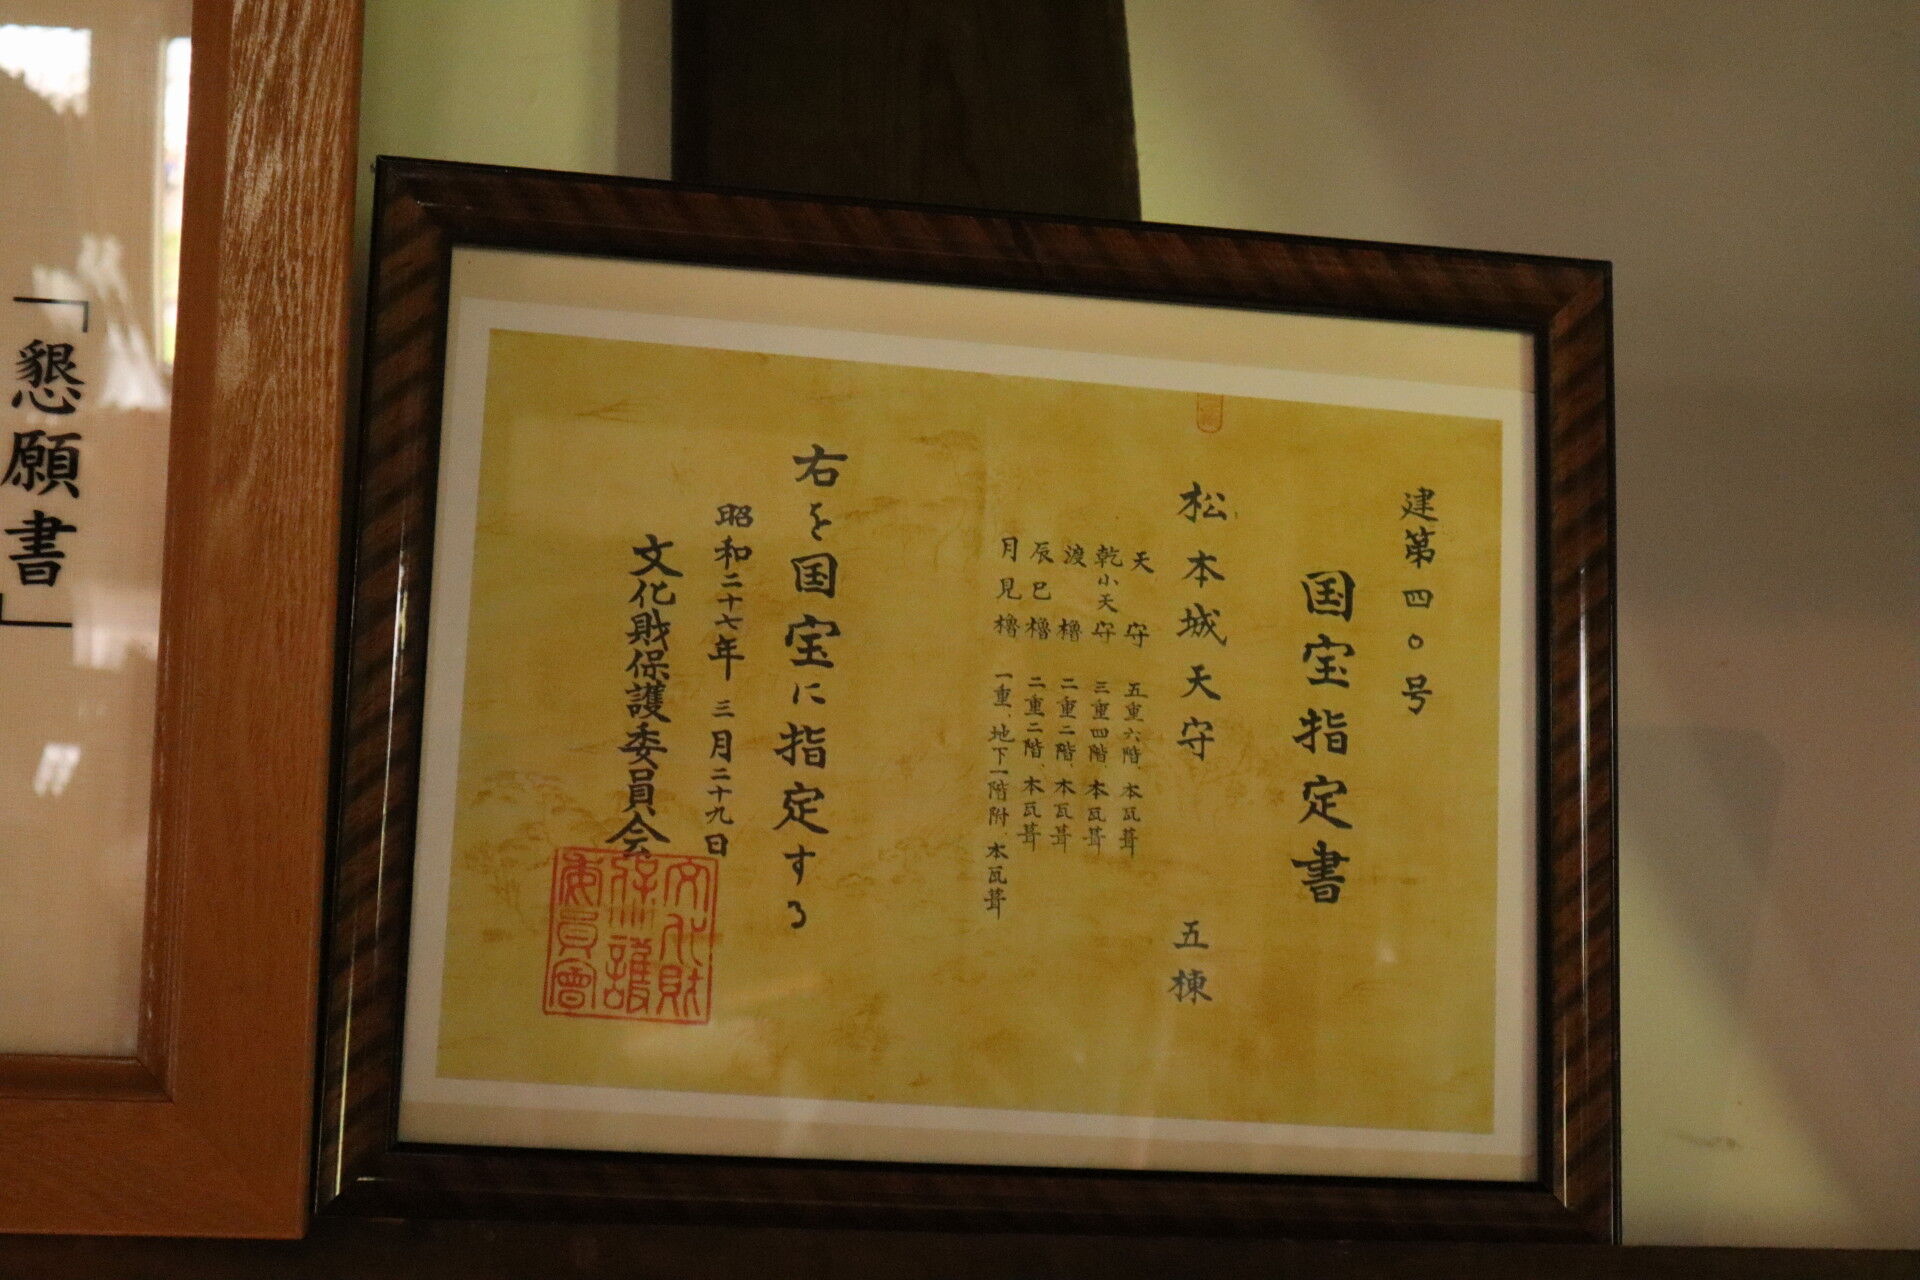 建第四〇号
国宝指定書
松本城天守 五棟
天守 五重六階、本瓦葺
乾小天守 三重四階、本瓦葺
渡櫓 二重二階、本瓦葺
辰巳櫓 二重二階、本瓦葺
月見櫓 一重、地下一階附、本瓦葺
右を国宝に指定する
昭和二十七年三月二十九日
文化財保護委員会
文化財
保護
委員會
「懇願書」